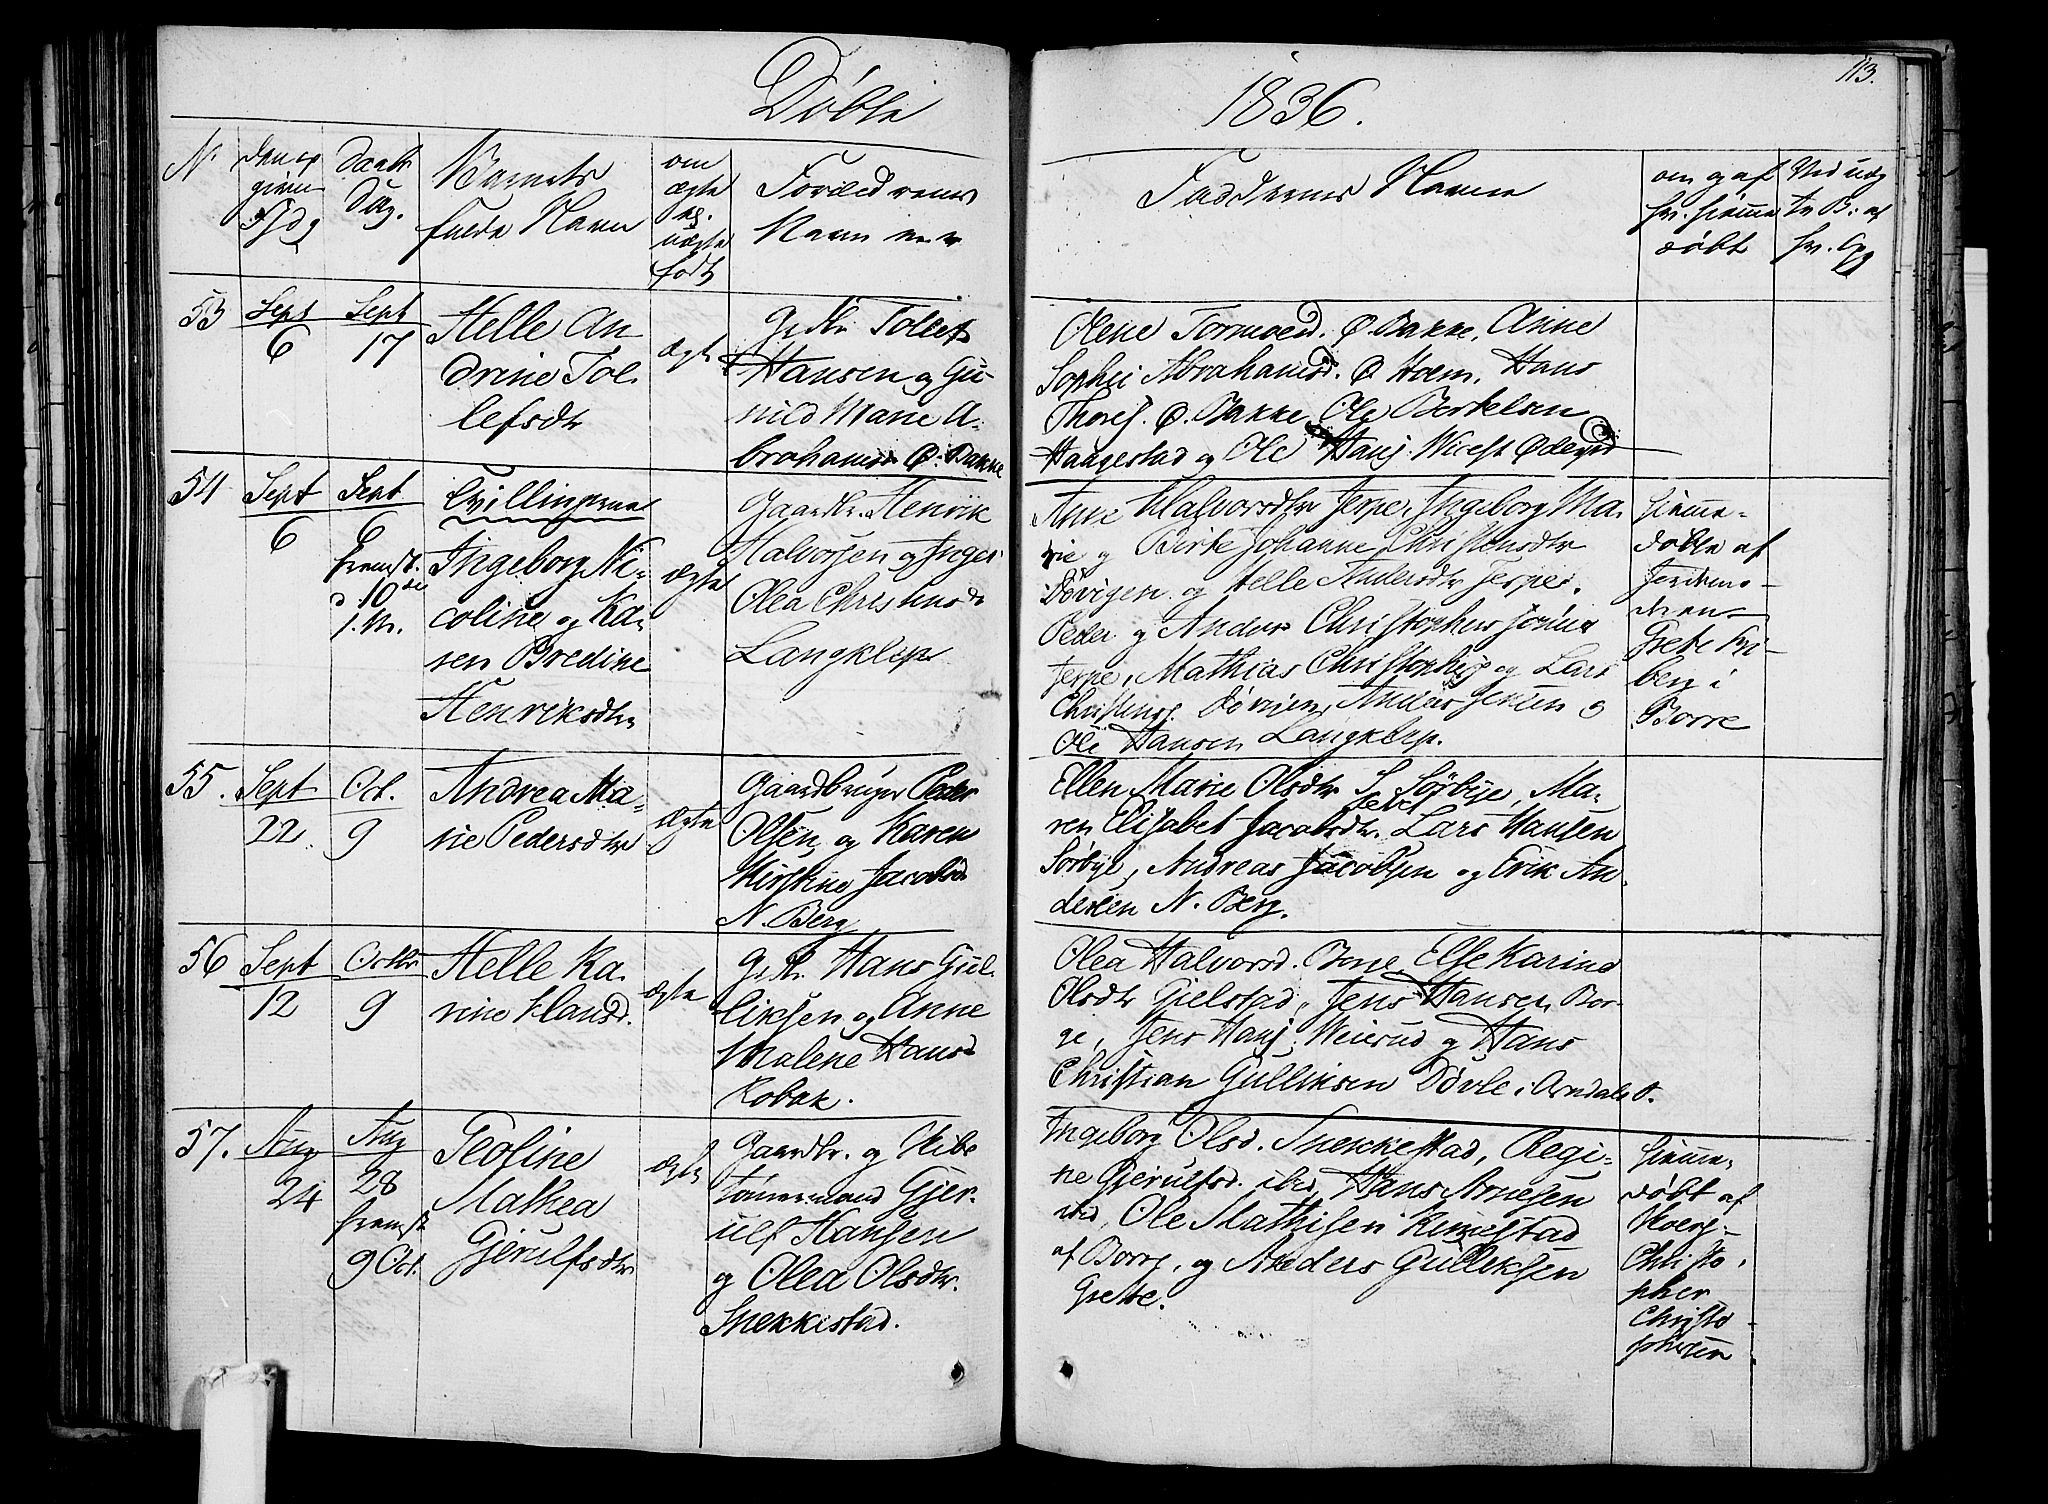 Døbte
1836.
113.
N.
den op
given
Fsdg
Daabs
Dag.
Barnets
fulde Navn
om
ægte
el.
uægte
født
Forældrenes
Navn
Faddernes Navne
om og af
hv. hjemme
døbt
53
Sept
6
Sept
17
Helle An
drine Tol
lefsdtr
ægte
Gdbr. Tollef
Hansen og Gu-
nild Marie A-
brahamsd. Ø. Bakke
Olene Tormoesd. Ø. Bakke, Anne
Sophie Abrahamsd. Ø Holm, Hans
Thoresj. Ø. Bakke, Ole Bertelsen
Haugestad og Ole Hansj.
54
Sept
6
Sept
6
fremst.
d. 10de
s. M.
Tvillingerne
Ingeborg Ni-
coline og Ka-
ren Bredine
Henriksdtr
ægte
Gaardbr. Henrik
Halvorsen og Inger
Olea Christensdr
Langklep
Anne Halvorsdtr Jerpe, Ingeborg Ma-
rie og Birte Johanne Christensdtr
Døvigen og Helle Andersdtr Jerpe,
Peder og Anders Christophersønner
Jerpe, Mathias Christophsj og Lars
Christensj. Døvigen, Anders Jensen og
Ole Hansen Langklep.
hjemme-
døbte af
Jordemo-
deren
Grete Kri
berg i
Borre
55.
Sept
22
Oct.
9
Andrea Ma-
rie Pedersdtr
ægte
Gaardbruger Peder
Olsen og Karen
Kirstine Jacobsd
N. Berg
Ellen Marie Olsdtr S. Sørbye, Ma-
ren Elisabet Jacobsdtr. Lars Hansen
Sørbye, Andreas Jacobsen og Erik An-
dersen N. Berg.
56
Sept
12
Octbr
9
Helle Ka-
rine Hansd.
ægte
Gdbr. Hans Gul-
liksen og Anne
Malene Hansd
Robak.
Olea Halvorsd. Borge, Else Karine
Olsdtr Gjelstad, Jens Hansen Bor-
ge, Jens Hansj. Weierud og Hans
Christian Gulliksen Døvle i Arndal
57.
Aug
24
Aug
28
fremst
9 Oct.
Teoline
Mathea
Gjerulfsdtr
ægte
Gaardbr. og Skibs
tømmermand Gjer-
ulf Hansen
og Olea Olsdtr.
Snekkestad.
Ingeborg Olsd. Snekkestad, Regi-
ne Gjerulfsd. ibd, Hans Arnesen
ibd, Ole Mathisen Rimestad
af Borre, og Anders Gulliksen
Grette.
hjemme-
døbt af
Christo-
pher
Christo-
phersen